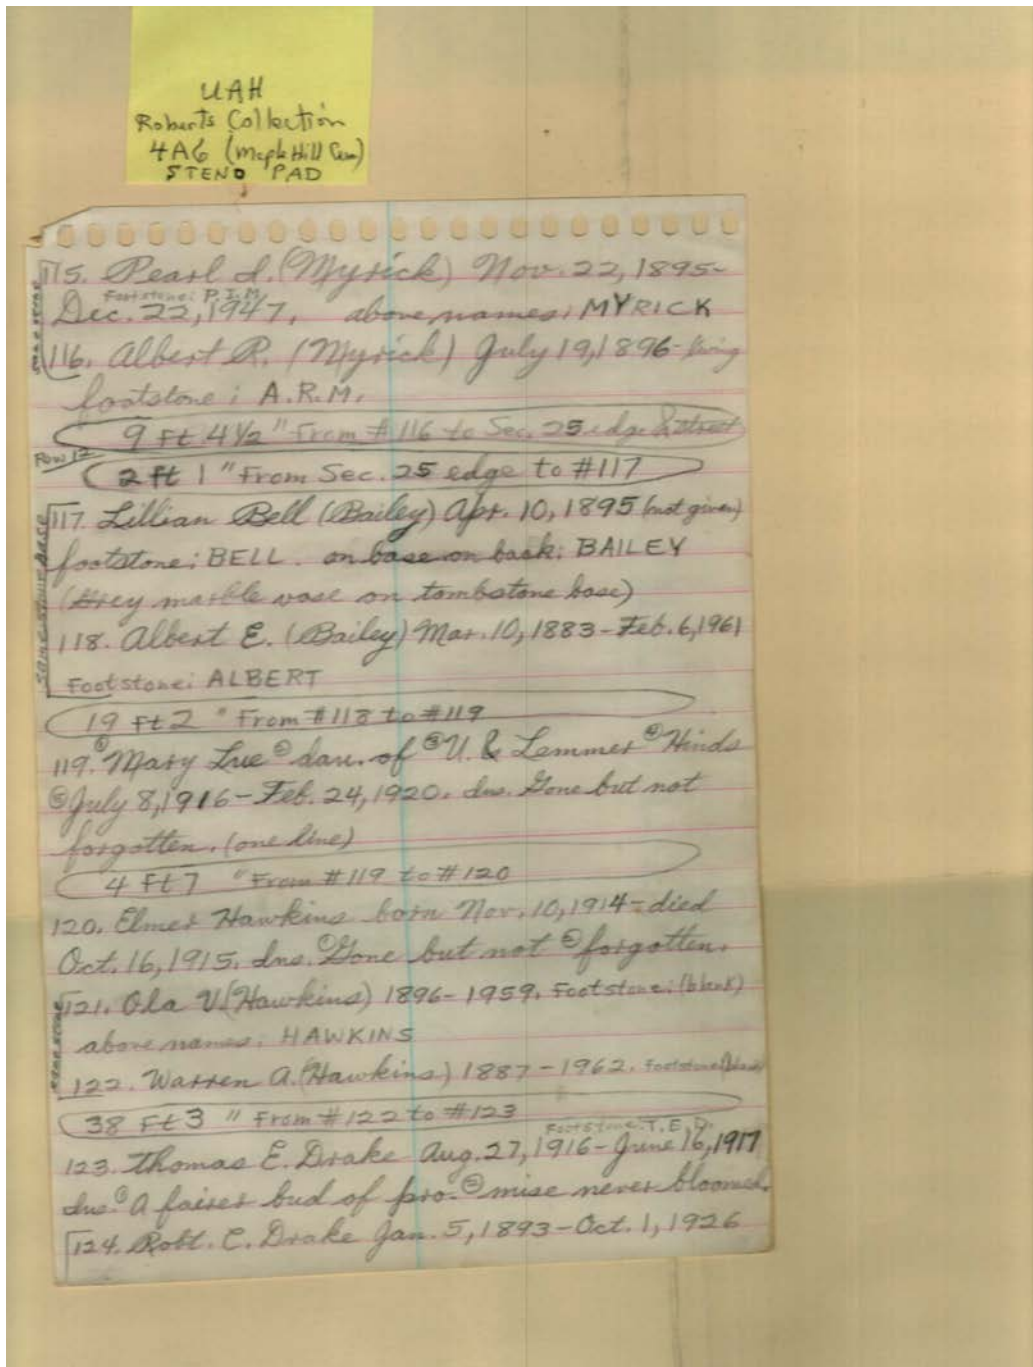 UAH
Roberts Collection
4A6 (Maple Hill Cem)
STENO PAD
115. Pearl I. (Myrick) Nov. 22, 1895-
Footstone: P.I.M.
Dec. 22, 1947, above names: MYRICK
116. Albert R. (Myrick) July 19, 1896- living
footstone: A.R.M.
9 Ft 4½" From #116 to Sec. 25 edge & street
Row 12
2 ft 1" From Sec. 25 edge to #117
SAME STONE BASE
117. Lillian Bell (Bailey) Apr. 10, 1895 (not given)
footstone: BELL. on base on back: BAILEY
(Grey marble vase on tombstone base)
118. Albert E. (Bailey) Mar. 10, 1883-Feb. 6, 1961
Footstone: ALBERT
19 Ft 2" From #118 to #119
119. ① Mary Lue ② dau. of ③ U. & Lemmer ④ Hinds
⑤ July 8, 1916-Feb. 24, 1920. Ins. Gone but not
forgotten. (one line)
4 Ft 7" From #119 to #120
120. Elmer Hawkins born Nov. 10, 1914-died
Oct. 16, 1915. Ins. ① Gone but not ② forgotten.
SAME STONE
121. Ola V. (Hawkins) 1896-1959. Footstone: (blank)
above names: HAWKINS
122. Warren A. (Hawkins) 1887-1962. Footstone (blank)
38 Ft 3" From #122 to #123
Footstone: T.E.D.
123. Thomas E. Drake Aug. 27, 1916-June 16, 1917
Ins. ① A fairer bud of pro- ② mise never bloomed.
124. Robt. C. Drake Jan. 5, 1893-Oct. 1, 1926